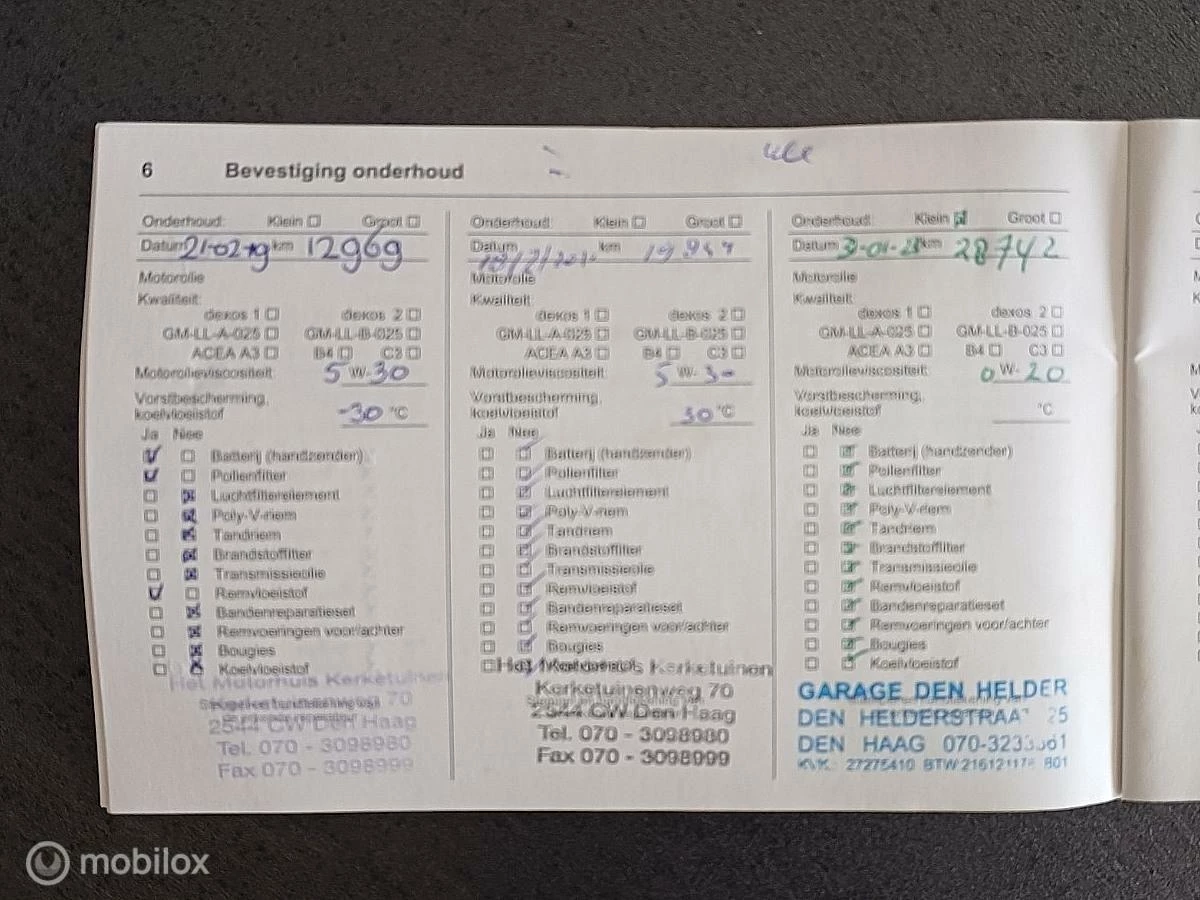 6 Bevestiging onderhoud
Onderhoud: Klein Groot
Datum 21-02-19 km 12969
Motorolie
Kwaliteit:
dexos 1 dexos 2
GM-LL-A-025 GM-LL-B-025
ACEA A3 B4 C3
Motorolieviscositeit 5 W- 30
Vorstbescherming,
koelvloeistof -30 °C
Ja Nee
Batterij (handzender)
Pollenfilter
Luchtfilterelement
Poly-V-riem
Tandriem
Brandstoffilter
Transmissieolie
Remvloeistof
Bandenreparatieset
Remvoeringen voor/achter
Bougies
Koelvloeistof
Het Motorhuis Kerketuinen
70
2544 CW Den Haag
Tel. 070 - 3098980
Fax 070 - 3098999
Onderhoud: Klein Groot
Datum km
Motorolie
Kwaliteit:
dexos 1 dexos 2
GM-LL-A-025 GM-LL-B-025
ACEA A3 B4 C3
Motorolieviscositeit 5 W- 30
Vorstbescherming,
koelvloeistof 30 °C
Ja Nee
Batterij (handzender)
Pollenfilter
Luchtfilterelement
Poly-V-riem
Tandriem
Brandstoffilter
Transmissieolie
Remvloeistof
Bandenreparatieset
Remvoeringen voor/achter
Bougies
Koelvloeistof
Het Motorhuis Kerketuinen
Kerketuinenweg 70
2544 CW Den Haag
Tel. 070 - 3098980
Fax 070 - 3098999
Onderhoud: Klein Groot
Datum km 28742
Motorolie
Kwaliteit:
dexos 1 dexos 2
GM-LL-A-025 GM-LL-B-025
ACEA A3 B4 C3
Motorolieviscositeit 0 W- 20
Vorstbescherming,
koelvloeistof °C
Ja Nee
Batterij (handzender)
Pollenfilter
Luchtfilterelement
Poly-V-riem
Tandriem
Brandstoffilter
Transmissieolie
Remvloeistof
Bandenreparatieset
Remvoeringen voor/achter
Bougies
Koelvloeistof
GARAGE DEN HELDER
DEN HELDERSTRAAT 25
DEN HAAG
KVK. 27275410 BTW B01
mobilox